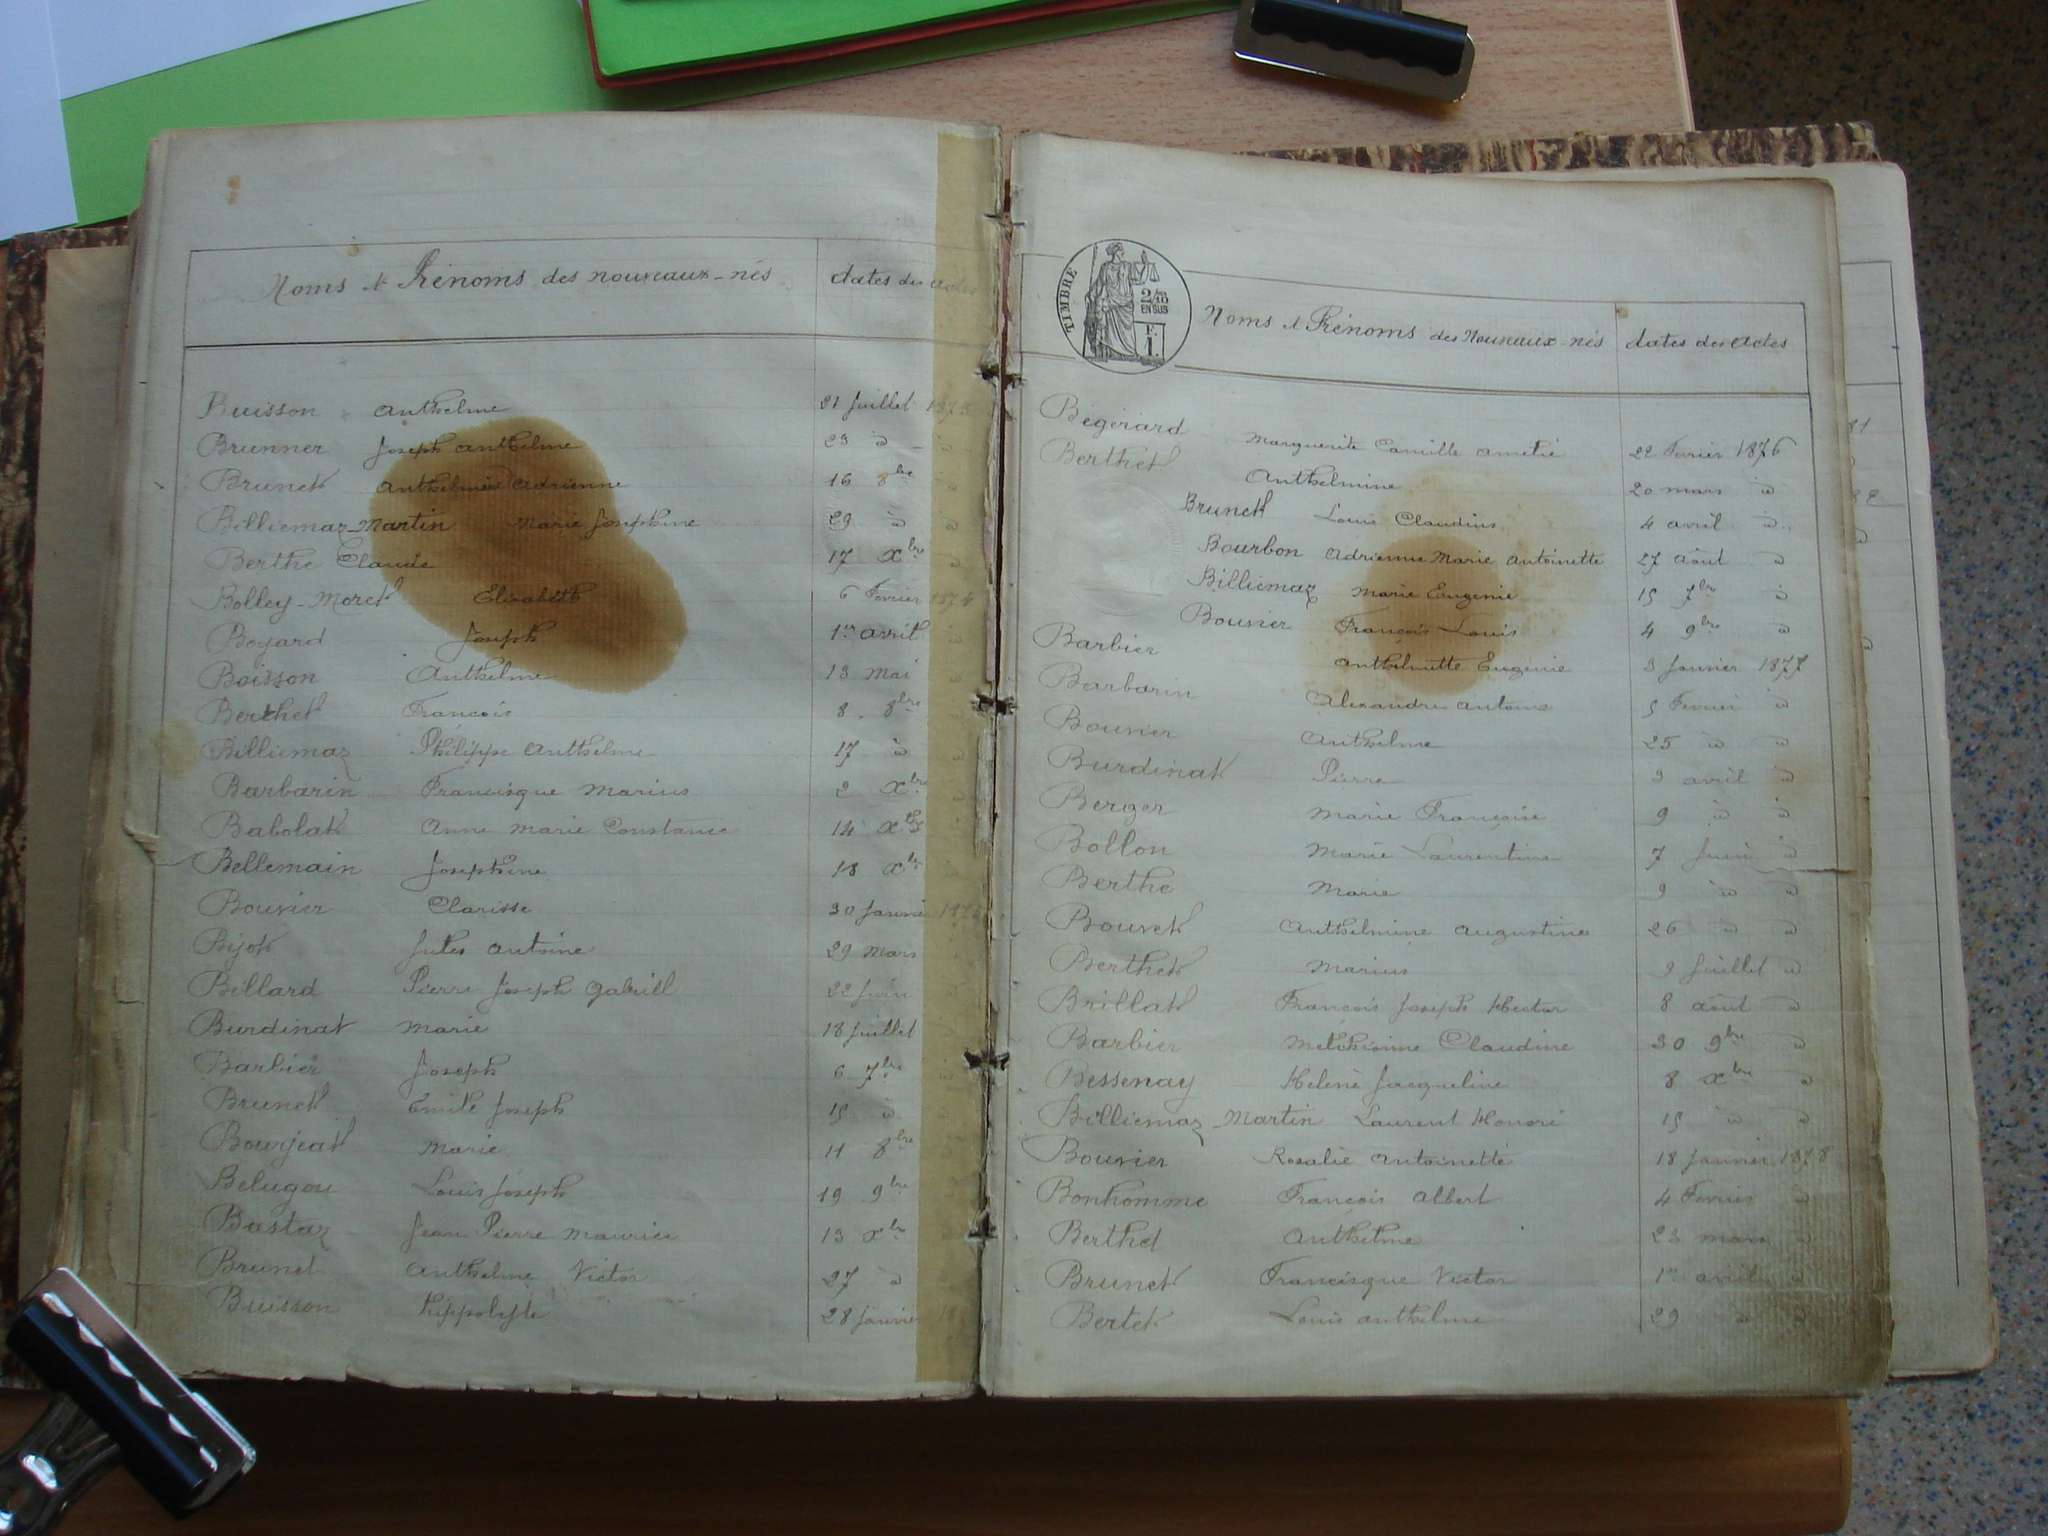 Noms & Prénoms des nouveaux-nés dates des actes
Buisson Anthelme 21 Juillet 1873
Brunner Joseph Anthelme 23 d
Brunet Anthelmine Adrienne 16 8bre
Billiemaz-Martin Marie Josephine 29 d
Berthe Claude 17 Xbre
Bolley-Moret Elisabeth 6 Fevrier 1874
Boyard Joseph 1er avril
Boisson Anthelme 13 Mai
Berthet François 8 8bre
Billiemaz Philippe Anthelme 17 d
Barbarin Francisque Marius 2 Xbre
Babolat Anne Marie Constance 14 Xbre
Bellemain Josephine 18 Xbre
Bouvier Clarisse 30 Janvier
Bijot Jules Antoine 29 Mars
Billard Pierre Joseph Gabriel 22 Juin
Burdinat Marie 18 Juillet
Barbier Joseph 6 7bre
Brunet Emile Joseph 15 d
Bourjeat Marie 11 8bre
Belugou Louis Joseph 19 9bre
Bastaz Jean Pierre Maurice 13 Xbre
Brunet Anthelme Victor 27 d
Buisson Hippolyte 28 Janvier
TIMBRE
2/10
EN SUS
F.
1.
Noms & Prénoms des Nouveaux-nés dates des actes
Bégérard Marguerite Camille Amélie 22 Fevrier 1876
Berthet Anthelmine 20 mars d
Brunet Louis Claudius 4 avril d
Bourbon Adrienne Marie Antoinette 27 août d
Billiemaz Marie Eugenie 15 7bre d
Bouvier François Louis 4 9bre d
Barbier Anthelmette Eugénie 3 Janvier 1877
Barbarin Alexandre Antoine 5 Fevrier d
Bouvier Anthelme 25 d d
Burdinat Pierre 3 avril d
Berger Marie Françoise 9 d d
Bollon Marie Laurentine 7 Juin d
Berthe Marie 9 d d
Bouvet Anthelmine Augustine 26 d d
Berthet Marius 9 Juillet d
Brillat François Joseph Hector 8 août d
Barbier Claudine 30 9bre d
Bessenay Helène Jacqueline 8 Xbre d
Billiemaz-Martin Laurent Honoré 15 d d
Bouvier Rosalie Antoinette 18 Janvier 1878
Bonhomme François Albert 4 Fevrier d
Berthet Anthelme 23 mars d
Brunet Francisque Victor 1er avril d
Bertet Louis Anthelme 29 d d
81
82